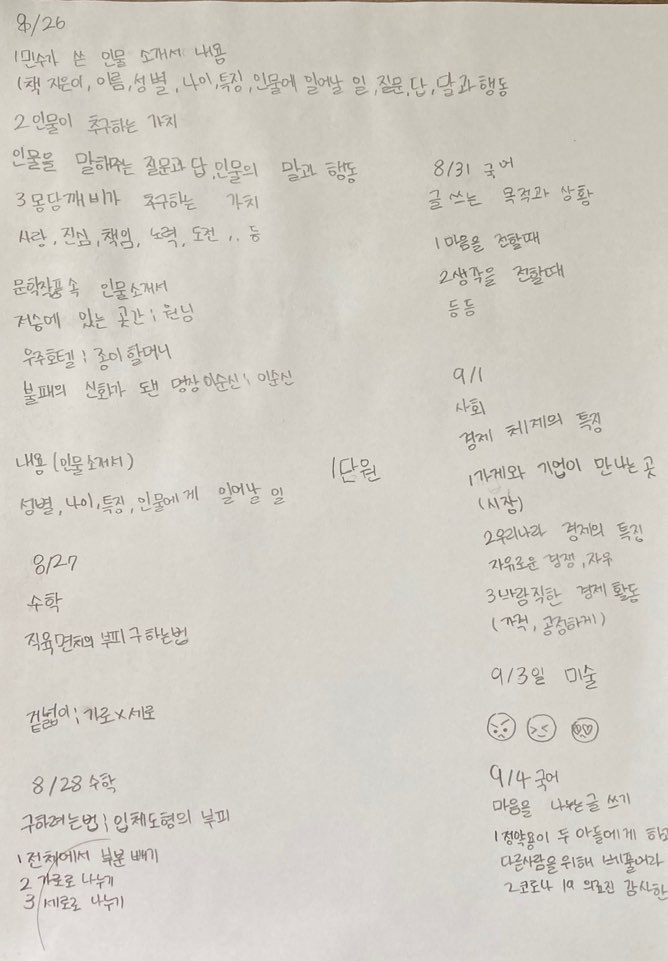 8/26
1 민수가 쓴 인물 소개서 내용
(책 지은이, 이름, 성별, 나이, 특징, 인물에 일어날 일, 질문, 답, 말과 행동
2 인물이 추구하는 가치
인물을 말해주는 질문과 답, 인물의 말과 행동
3 몽당깨비가 추구하는 가치
사랑, 진심, 책임, 노력, 도전 ,.. 등
문학작품 속 인물소개서
저승에 있는 곳간 ; 원님
우주호텔 ; 종이 할머니
불패의 신화가 됀 명장 이순신 ; 이순신
내용 (인물소개서)
성별, 나이, 특징, 인물에게 일어날 일
1단원
8/27
수학
직육면체의 부피 구하는법
겉넓이 ; 가로×세로
8/28 수학
구하려는법 ; 입체도형의 부피
1 전체에서 부분 빼기
2 가로로 나누기
3 세로로 나누기
8/31 국어
글 쓰는 목적과 상황
1 마음을 전할때
2 생각을 전할때
등등
9/1
사회
경제 체제의 특징
1 가게와 기업이 만나는 곳
(시장)
2 우리나라 경제의 특징
자유로운 경쟁, 자유
3 바람직한 경제 활동
(가격, 공정하게)
9/3일 미술
9/4 국어
마음을 나누는 글 쓰기
1 정약용이 두 아들에게 하고
다른사람을 위해 베풀어라
2 코로나 19 의료진 감사한